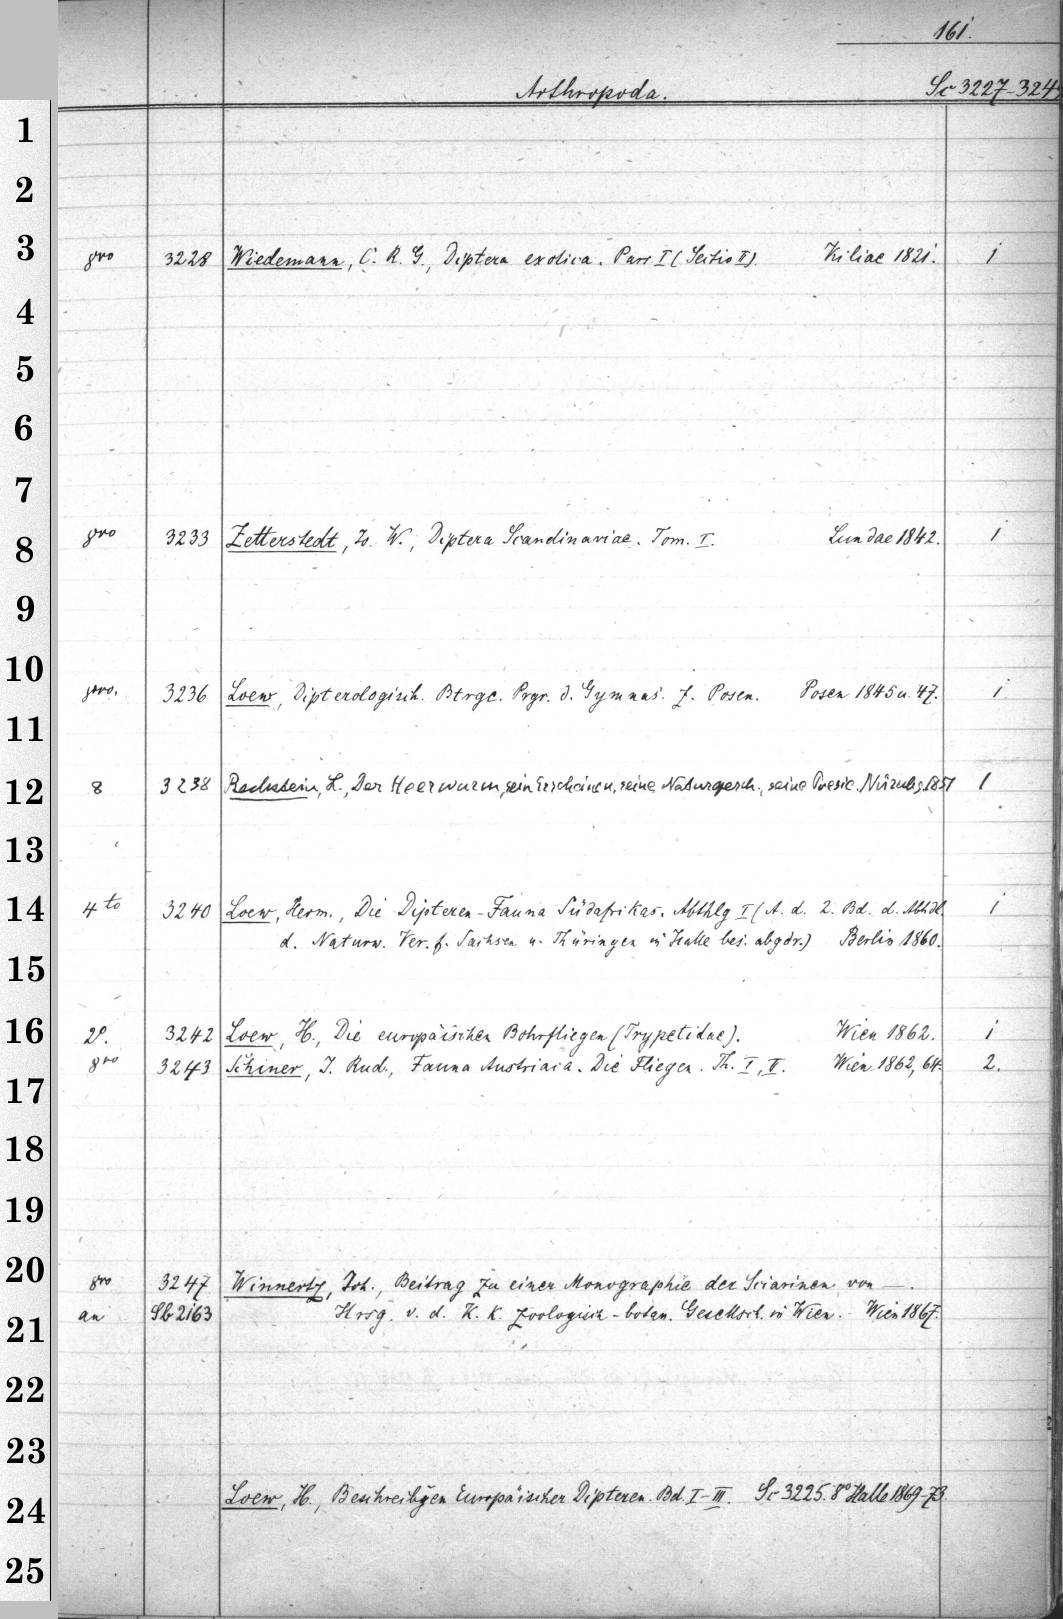 161.
Arthropoda. Sc 3227-324
1
2
3 8vo 3228 Wiedemann, C. R. G., Diptera exotica. Pars I (Sectio II). Kiliae 1821. 1
4
5
6
7
8 8vo 3233 Zetterstedt, Jo. W., Diptera Scandinaviae. Tom. I. Lundae 1842. 1
9
10 8vo. 3236 Loew, Dipterologisch. Btrge. Prgr. d. Gymnas. z. Posen. Posen 1845 u. 47. 1
11
12 8 3238 Bechstein, L., Der Heerwurm, sein Erscheinen, seine Naturgesch., seine Poesie. Nürnbg. 1851 1
13
14 4to 3240 Loew, Herm., Die Dipteren-Fauna Südafrikas. Abthlg I (A. d. 2. Bd. d. Abhdl. 1
d. Naturw. Ver. f. Sachsen u. Thüringen in Halle bes. abgdr.) Berlin 1860.
15
16 2º. 3242 Loew, H., Die europäischen Bohrfliegen (Trypetidae). Wien 1862. 1
8vo 3243 Schiner, J. Rud., Fauna Austriaca. Die Fliegen. Th. I, II. Wien 1862, 64. 2.
17
18
19
20 8vo 3247 Winnertz, Joh., Beitrag zu einer Monographie der Sciarinen von —.
21 an Sb 2163 Hrsg. v. d. K. K. zoologisch-botan. Gesellsch. in Wien. - Wien 1867.
22
23
24 Loew, H., Beschreibgen Europäischer Dipteren. Bd. I-III. Sc 3225. 8º Halle 1869-73
25